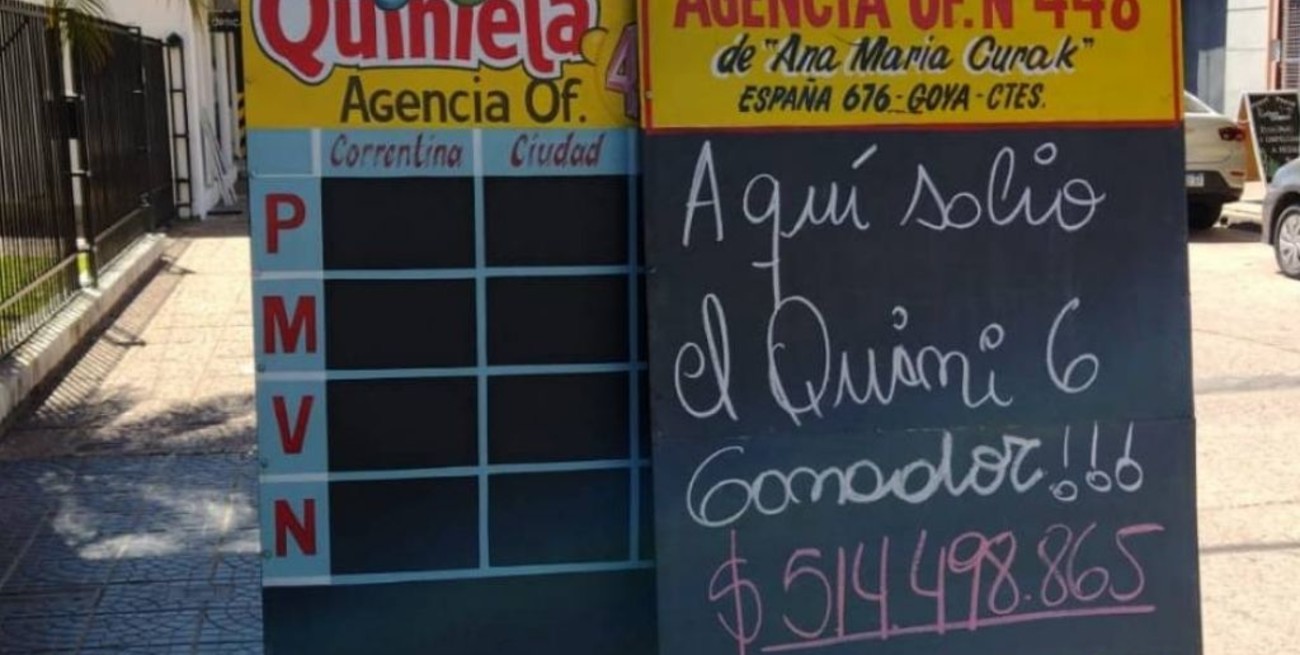 Quiniela
Agencia Of. 4
Correntina Ciudad
P
M
V
N
AGENCIA OF. N 448
de "Ana Maria Curak"
ESPAÑA 676 - GOYA - CTES.
Aquí solio
el Quini 6
Ganador!!!
$ 514.498.865